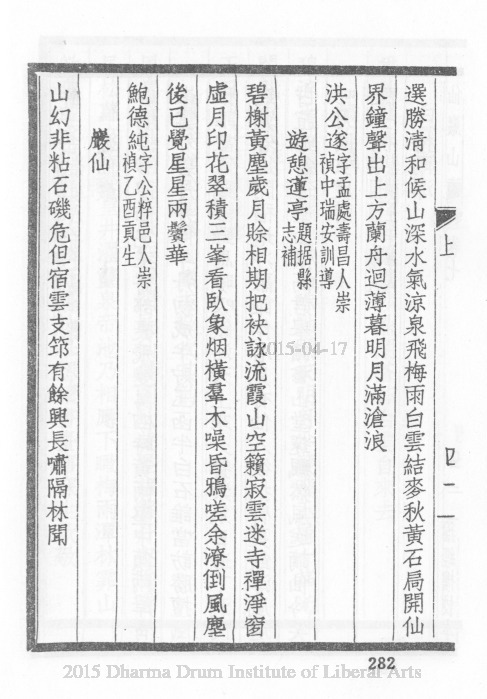 選勝清和候山深水氣涼泉飛梅雨白雲結麥秋黃石局開仙
界鐘聲出上方蘭舟迴薄暮明月滿滄浪
洪公遂字孟處壽昌人崇禎中瑞安訓導
遊憩蓮亭題据縣志補
碧榭黃塵歲月賒相期把袂詠流霞山空籟寂雲迷寺禪淨窗
虛月印花翠積三峯看臥象烟橫羣木噪昏鴉嗟余潦倒風塵
後已覺星星兩鬢華
鮑德純字公粹邑人崇禎乙酉貢生
巖仙
山幻非粘石磯危但宿雲支筇有餘興長嘯隔林聞
上
四二
282
2015-04-17
2015 Dharma Drum Institute of Liberal Arts